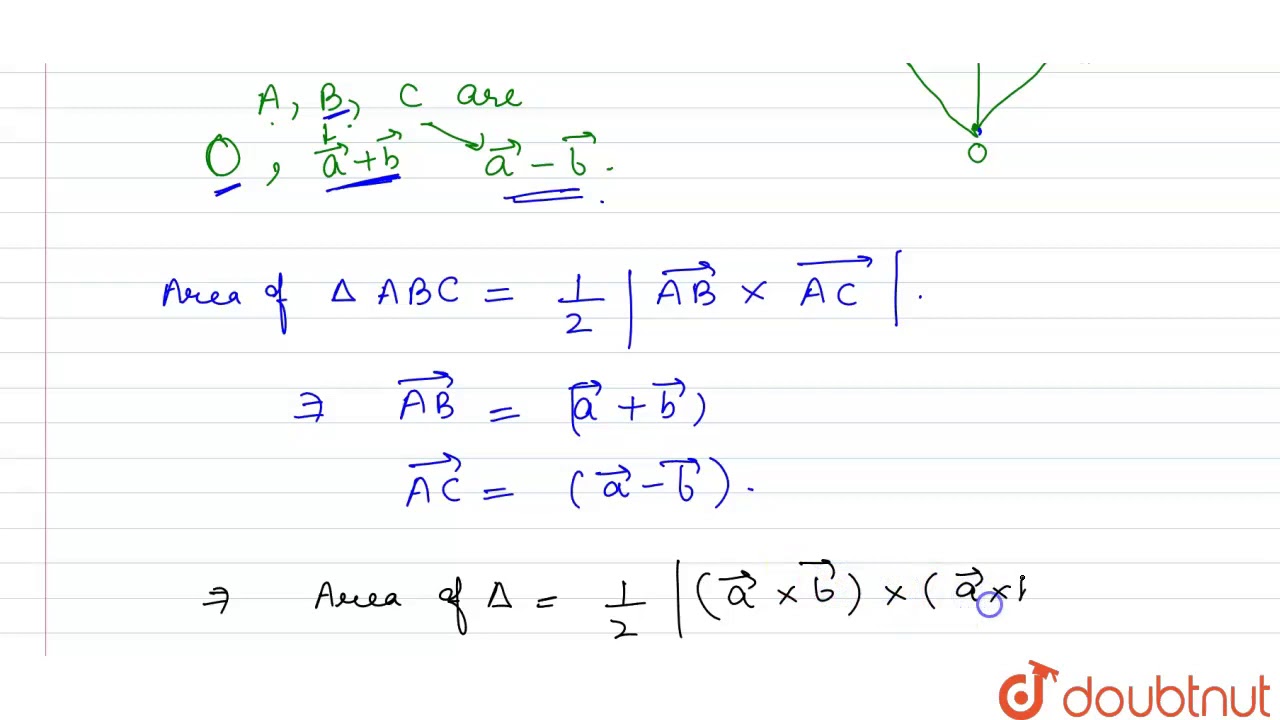 A, B, C are
O
O, a⃗+b⃗ a⃗ − b⃗.
Area of Δ ABC = 1/2 | AB⃗ × AC⃗ |.
⇒ AB⃗ = (a⃗ + b⃗)
AC⃗ = (a⃗ − b⃗).
⇒ Area of Δ = 1/2 |(a⃗ × b⃗) × (a⃗ ×
doubtnut